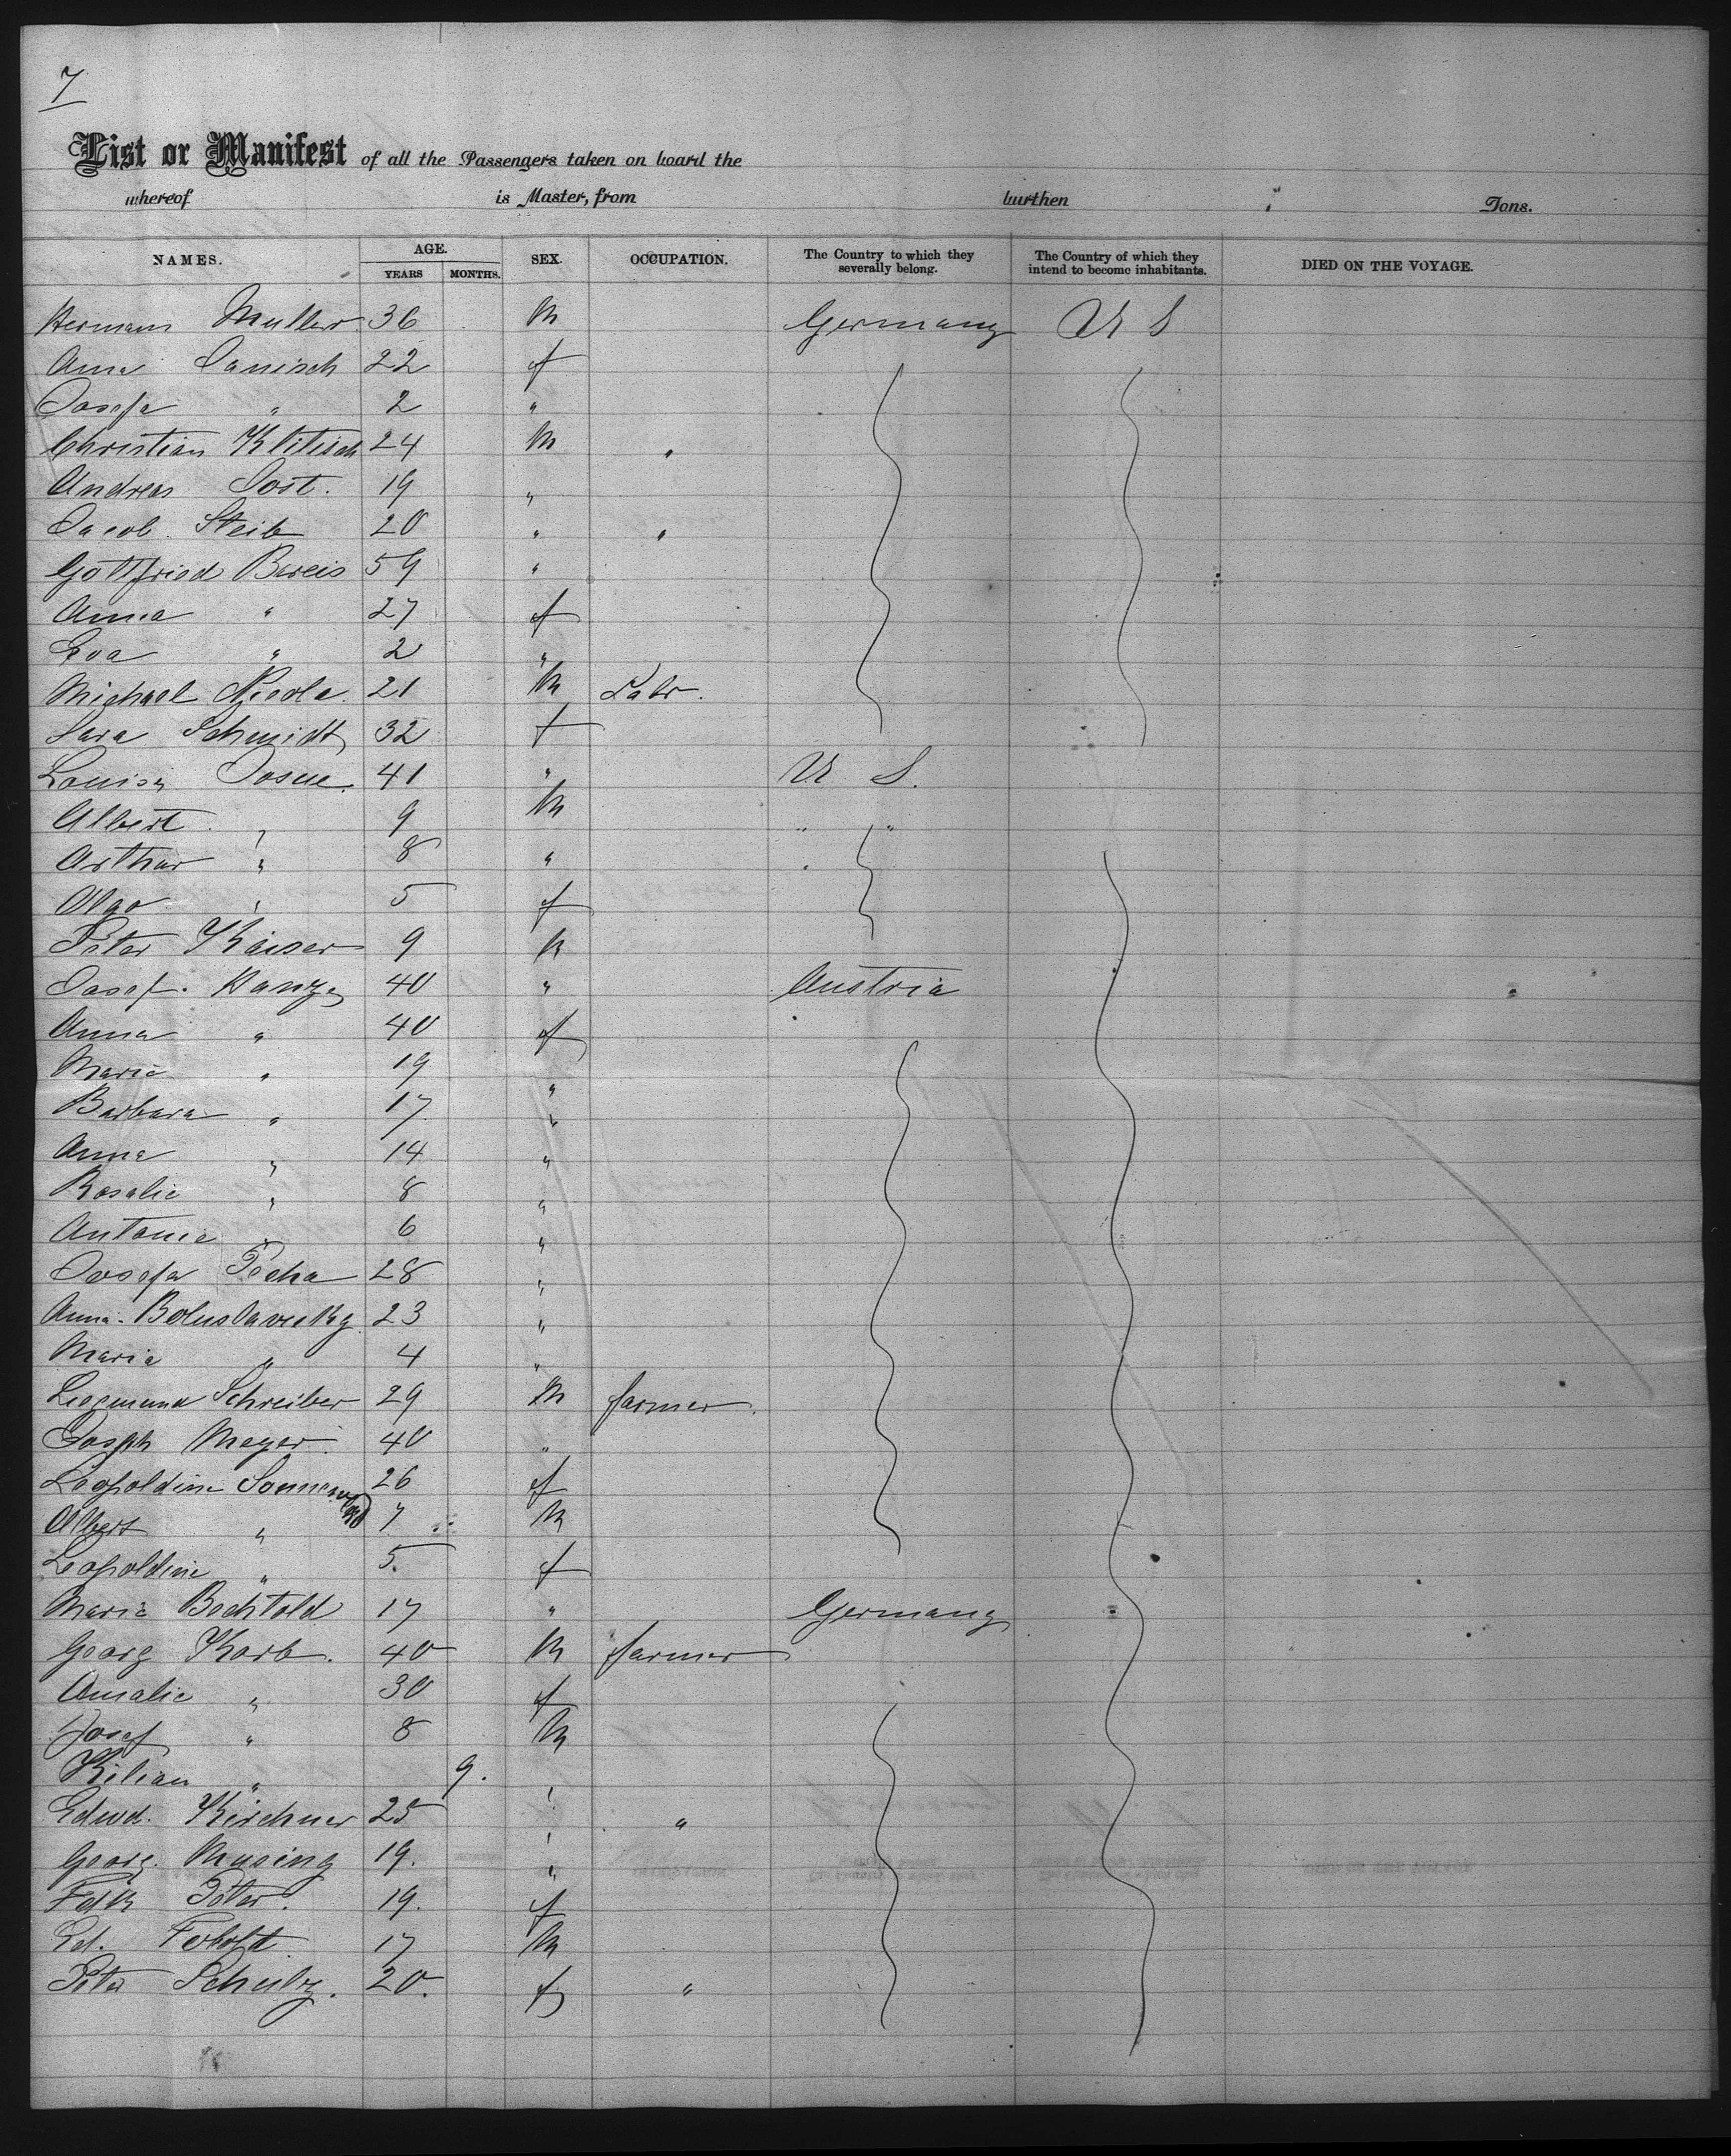 7
List or Manifest of all the Passengers taken on board the
whereof is Master, from burthen Tons.
NAMES. AGE. YEARS MONTHS. SEX. OCCUPATION. The Country to which they severally belong. The Country of which they intend to become inhabitants. DIED ON THE VOYAGE.
Hermann Muller 36 M Germany U S
Anna Janisch 22 f
Josefa " 2 "
Christian Klitisch 24 M "
Andreas Jost. 19 "
Jacob Steib 20 " "
Gottfried Bareis 59 "
Anna " 27 f
Eva " 2 "
Michael Nicola 21 M Labr.
Sara Schmidt 32 f
Louisa Josue. 41 " U S.
Albert " 9 M " "
Arthur " 8 " "
Olga " 5 f
Peter Kaiser 9 M
Josef. Hanza 40 " Austria
Anna " 40 f
Marie " 19 "
Barbara " 17 "
Anna " 14 "
Rosalie " 8 "
Antonie " 6 "
Josefa Pecha 28 "
Anna 23 "
Maria " 4 "
Schreiber 29 M farmer.
Joseph Meyer. 40 "
Leopoldine 26 f
Albert " 7 M
Leopoldine " 5. f
Maria Bechtold 17 " Germany
Georg Korb. 40 M farmer
Amalie " 30 f
Josef " 8 M
Kilian " 9. "
Edwd. Kirchner 25 " "
Georg. Musing 19. "
Peter. 19. f
Ed. 17 M
Schulz. 20. f "